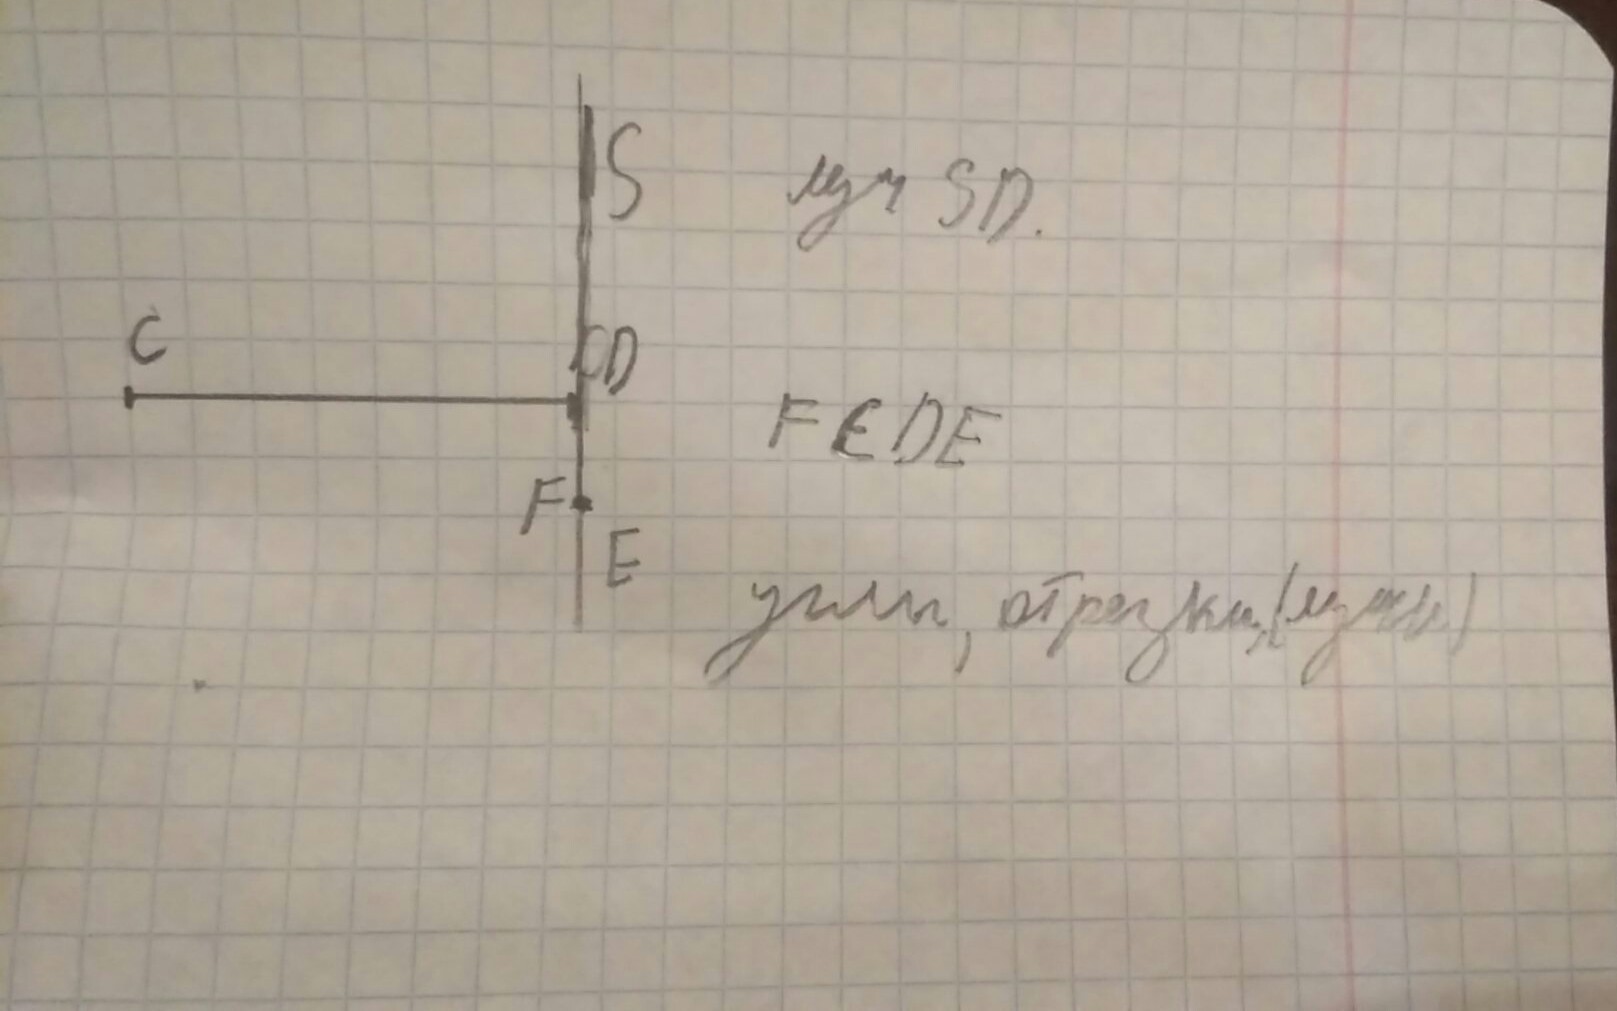 S
луч SD.
C
D
F ∈ DE
F
E
углы, отрезки, (лучи)